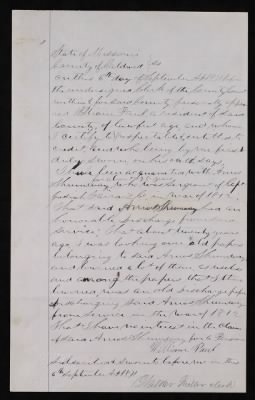 State of Missouri
County of
On this 6th day of September A.D. 18 before
the undersigned Clerk of the County Court
within & for said County personally appea-
red William Paul a resident of said
County, of lawful age and whom
I certify to respectable & entitled to
credit, and who being by me first
duly sworn, on his oath says,
I have been acquainted with Amos
Shumway who was Sergeant of Capt
Joseph in war of 1812
That said Amos Shumway had an
honorable discharge from
service, that about twenty years
ago, I was looking over old papers
belonging to said Amos Shumway
and burned a lot of them as rubbish
and among the papers that I
burned, was an old discharge paper
discharging said Amos Shumway
from service in the war of 1812,
That I have no interest in the claim
of said Amos Shumway for a Pension
William Paul
Subscribed and sworn to before me on this
6th September A.D. 18
clerk